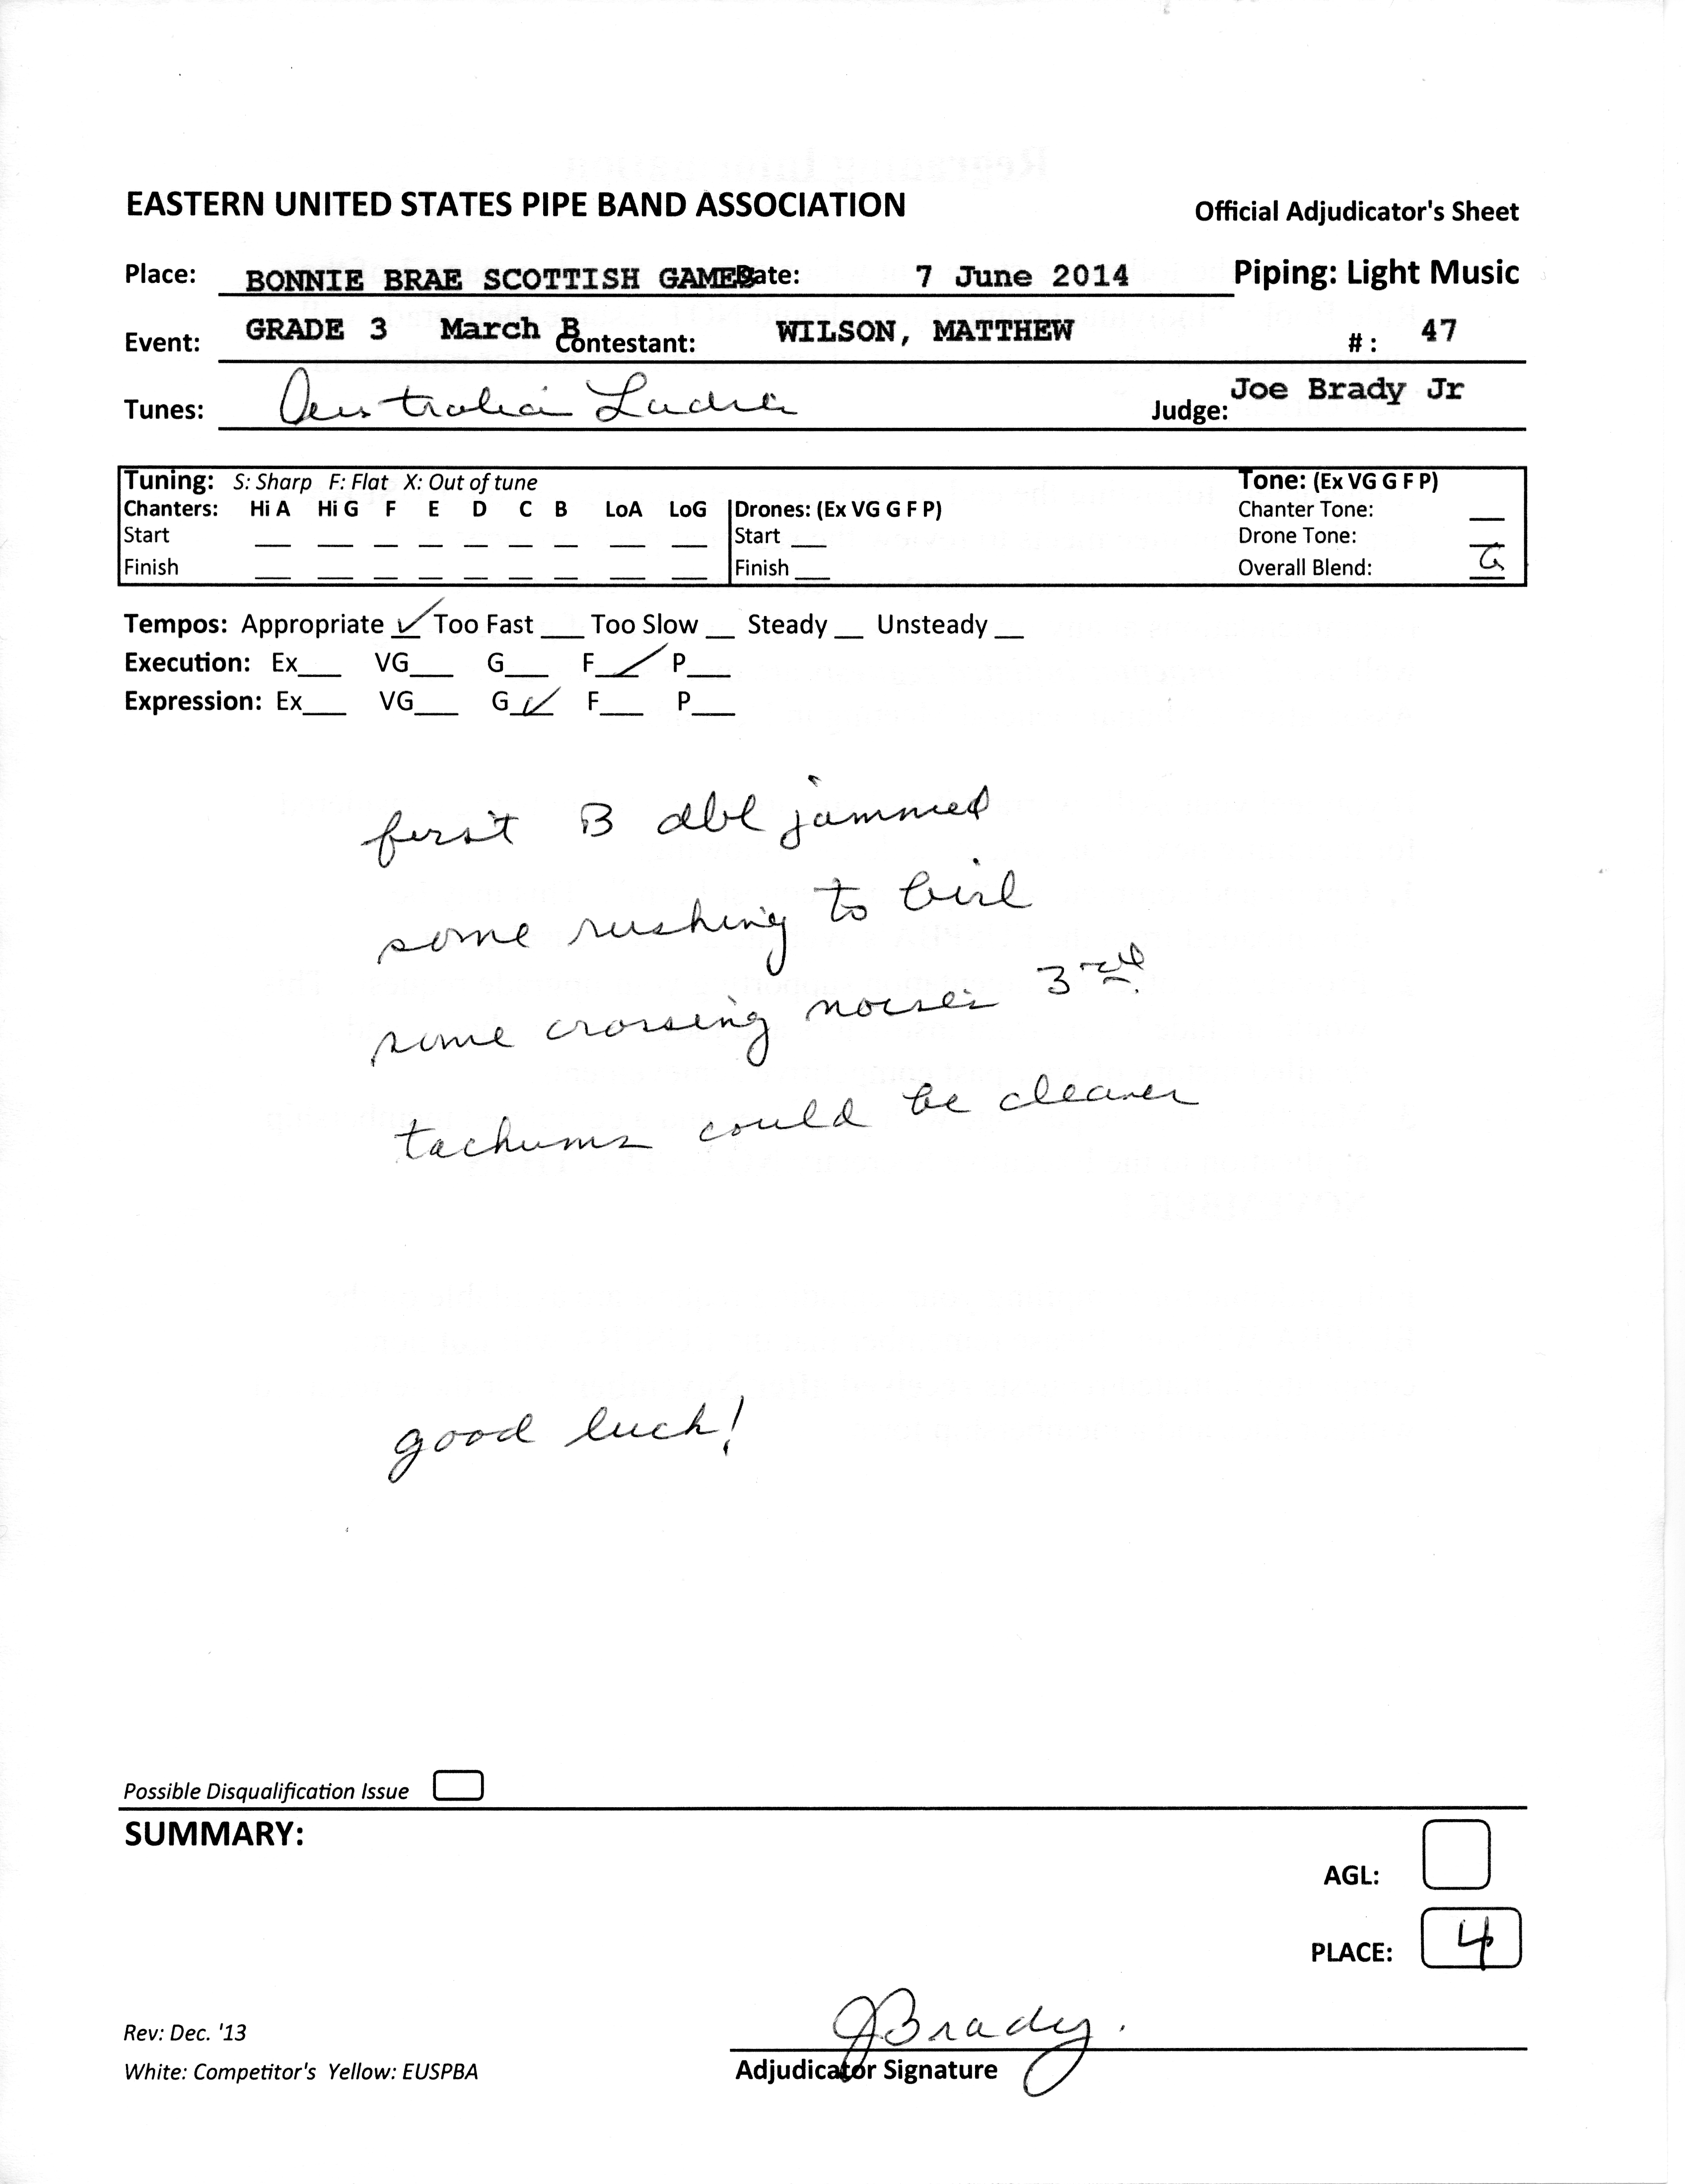 EASTERN UNITED STATES PIPE BAND ASSOCIATION Official Adjudicator's Sheet
Place: BONNIE BRAE SCOTTISH GAMES Date: 7 June 2014 Piping: Light Music
Event: GRADE 3 March B Contestant: WILSON, MATTHEW #: 47
Tunes: Australia Ladies Judge: Joe Brady Jr
Tuning: S: Sharp F: Flat X: Out of tune Tone: (Ex VG G F P)
Chanters: Hi A Hi G F E D C B LoA LoG Drones: (Ex VG G F P) Chanter Tone: __
Start __ __ __ __ __ __ __ __ __ Start __ Drone Tone: __
Finish __ __ __ __ __ __ __ __ __ Finish __ Overall Blend: G
Tempos: Appropriate ✓ Too Fast __ Too Slow __ Steady __ Unsteady __
Execution: Ex__ VG__ G__ F ✓ P__
Expression: Ex__ VG__ G ✓ F__ P__
first B dbl jammed
some rushing to birl
some crossing noises 3rd.
tachums could be cleaner
good luck!
Possible Disqualification Issue
SUMMARY:
AGL:
PLACE: 4
JBrady.
Rev: Dec. '13
White: Competitor's Yellow: EUSPBA Adjudicator Signature